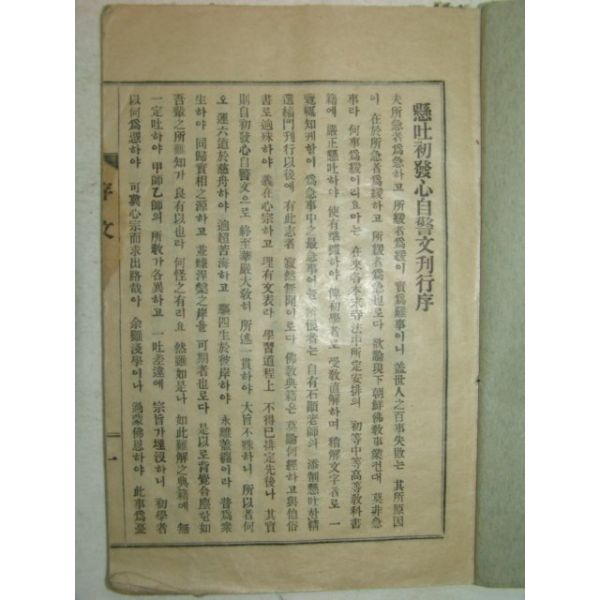 懸吐初發心自警文刊行序
夫所急者爲急하고 所緩者爲緩이 實爲難事이니 盖世人之百事失敗는 其所原因
이 在於所急者爲緩하고 所緩者爲急也로다 欲論現下朝鮮佛敎事業컨대 莫非急
事라 何事爲緩이리요아는 在來各本末寺法中所定安排의 初等中等高等敎科書
籍에 嚴正懸吐하야 使有 하야 俾初學者로 受敎直解하며 精解文字者로 一
覽 知케함이 爲急事中之最急事 는 自有石顚老師의 添削懸吐한精
選緇門刊行以後에 有此志者 寂然無聞이로다 佛敎典籍은 莫論何經하고與他俗
書로逈殊하야 義在心宗하고 理有文表라 學習道程上 不得已排定先後나 其實
則自初發心自警文으로 終至華嚴大敎히 所述一貫하야 大旨不殊하니 所以者何
오 運六道於慈舟하야 逈超苦海하고 驅四生於彼岸하야 永離 라 普爲衆
生하야 同歸實相之源하고 並 涅槃之岸을 可期者也로다 是以로背覺合塵한如
吾輩之所難知가 良有以也라 何怪之有리요 然雖如是나 如此難解之典籍에 無
一定吐하야 甲師乙師의 所敎가各異하고 一吐差違에 宗旨가埋沒하니 初學者
以何爲憑하야 可 心宗而求出路哉아 余雖淺學이나 爲蒙佛恩하야 此事爲憂
序文
一